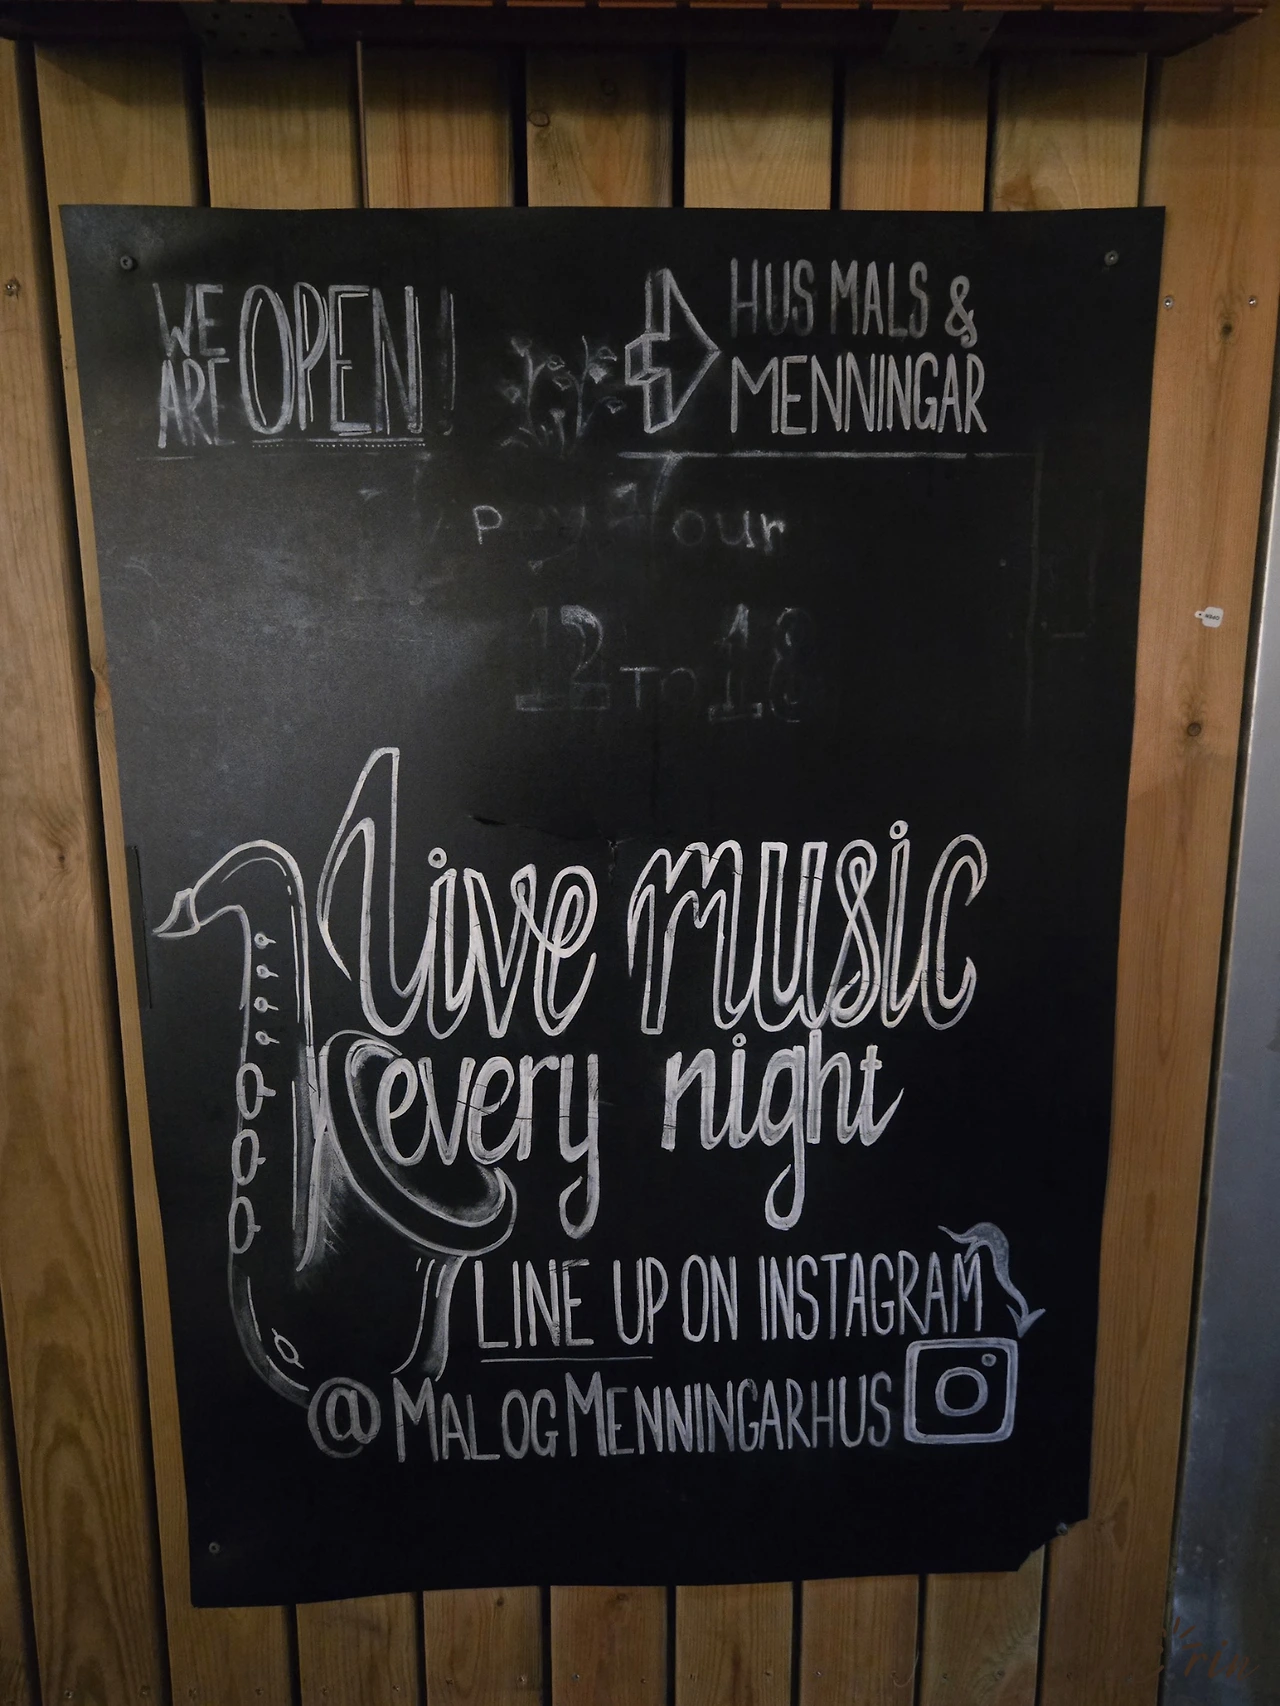 WE ARE OPEN!
HUS MALS &
MENNINGAR
our
12 TO 18
Live music
every night
LINE UP ON INSTAGRAM
@MALOGMENNINGARHUS